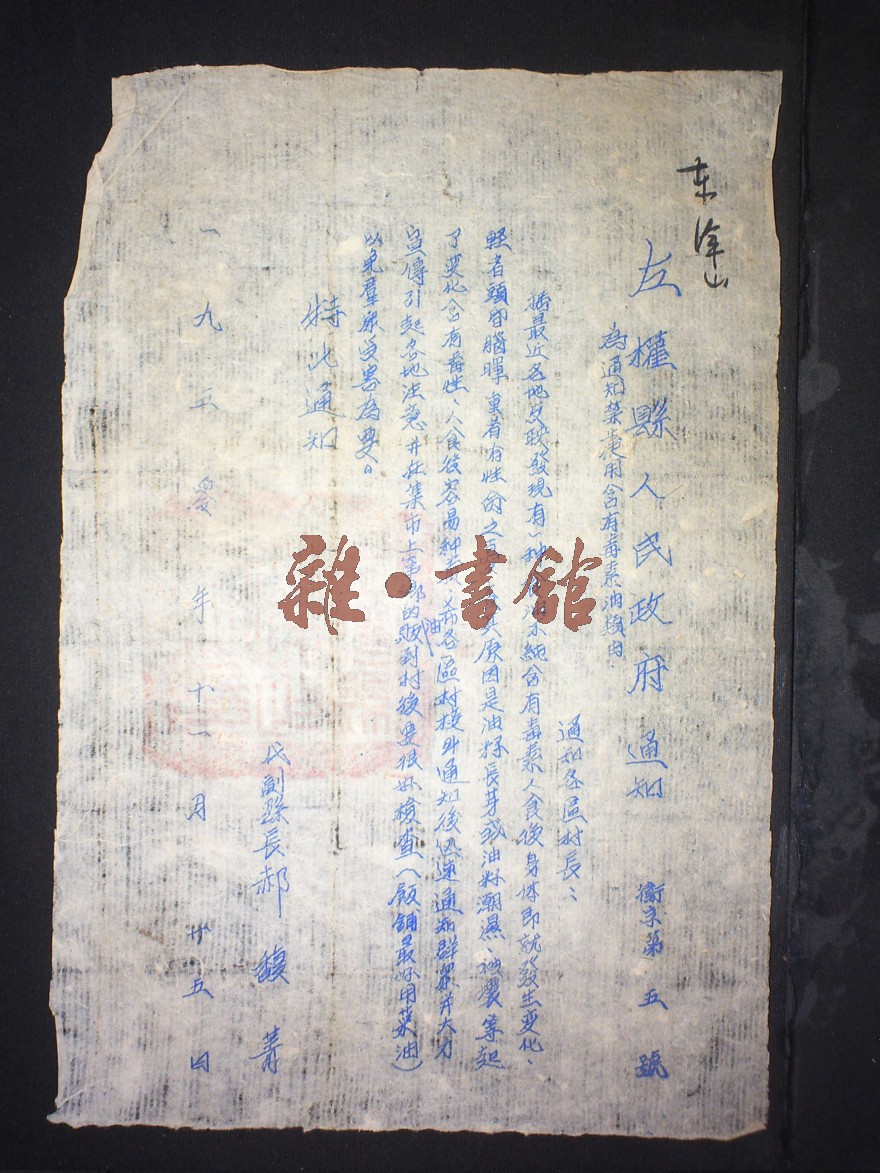 东
左權縣人民政府通知 衛字第五號
為通知禁走用含有毒素油類由
通知各區村長：
据最近各地反映發現有一种 油不純含有毒素人食後身体即就發生变化、
輕者頭昏腦暈重者有性命之 其原因是油籽長芽或油籽潮濕 等起
了变化含有毒性、人食後容易 希各區村接到通知後迅速通知群眾并大力
宣傳引起各地注意并在集市上 的油販到村後要很好檢查（飯鋪最好用菜油）
以免羣眾受害為要。
特此通知
代副縣長郝 菁
一九五 年十一月廿五日
雜·書館